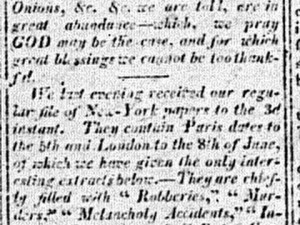 Onions, &c. &c. we are told, are in
great abundance—which, we pray
GOD may be the case, and for which
great blessings we cannot be too thank-
ful.
We last evening received our regu-
lar file of New-York papers to the 3d
instant. They contain Paris dates to
the 5th and London to the 8th of June,
of which we have given the only inter-
esting extracts below.—They are chief-
ly filled with "Robberies," "Mur-
ders," "Melancholy Accidents," "In-